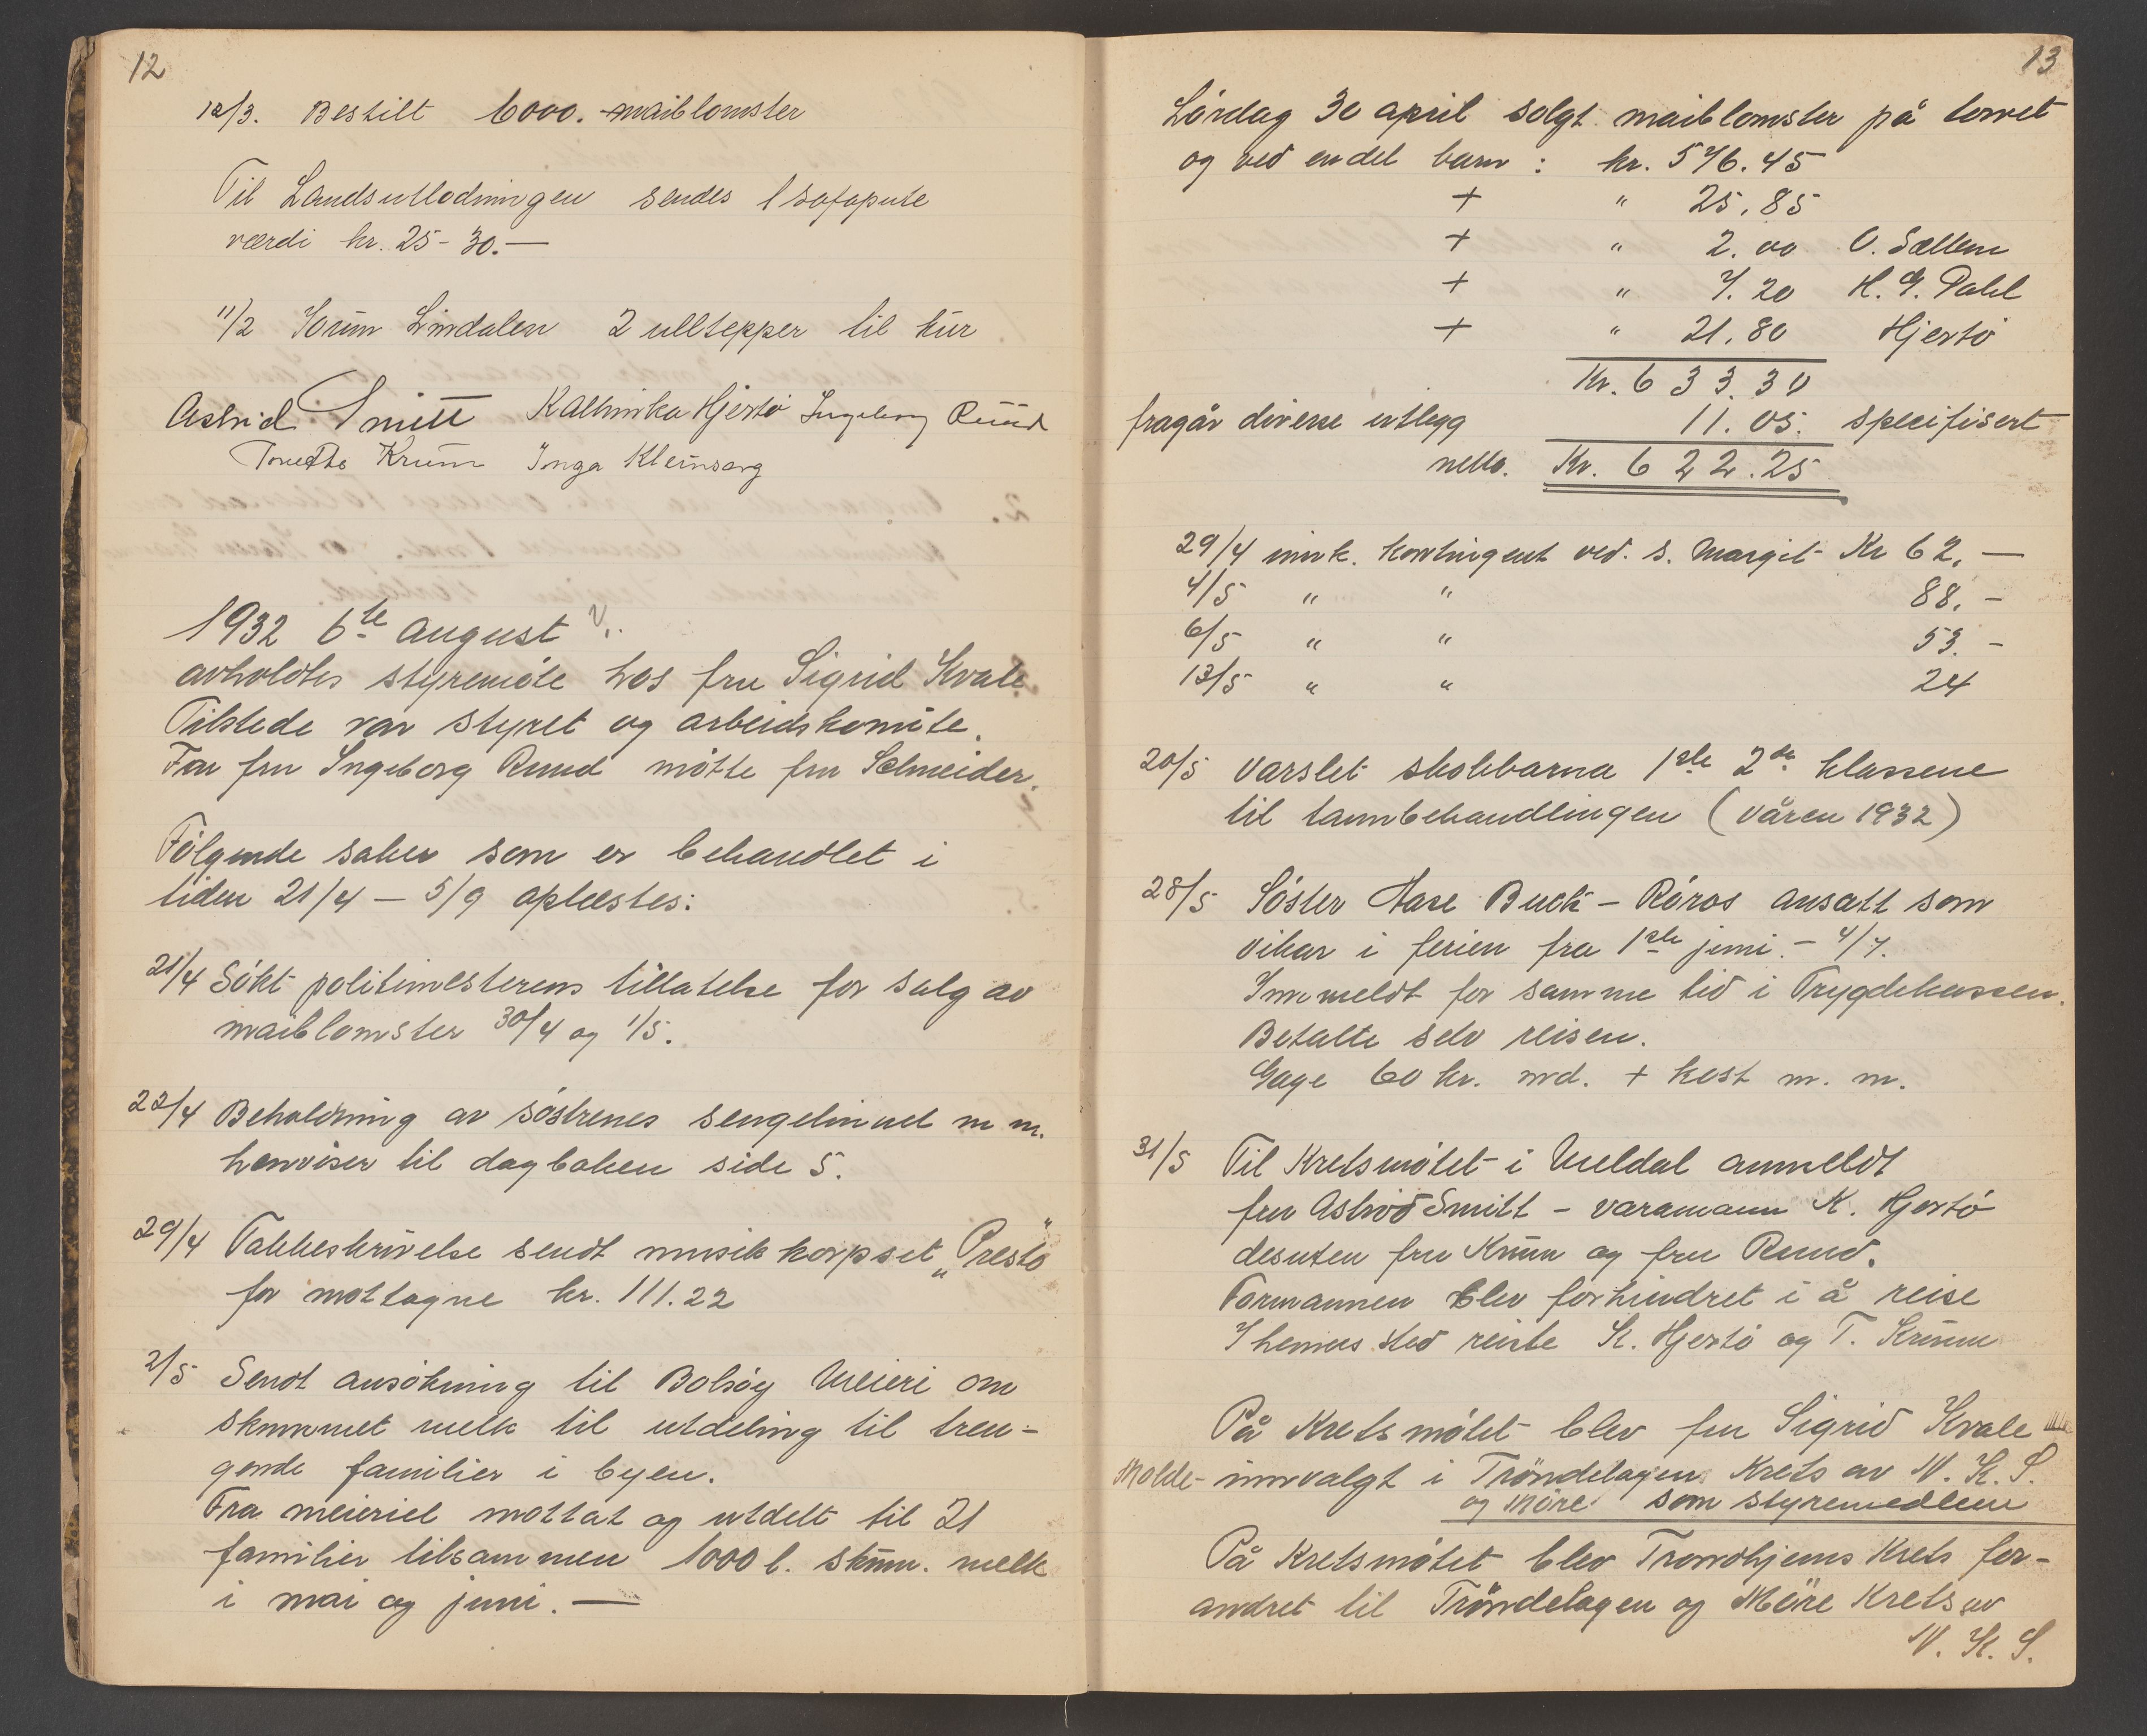 12
12/3. Bestilt 6000. maiblomster
Til Landsutlodningen sendes 1 sofapute
værdi kr. 25 - 30. —
11/2 Jorun Lindalen 2 ulltepper til kur
Astrid Smitt Kathinka Hjertö Ingeborg Ruud
Krum Inga Kleinsorg
1932 6te august
avholdtes styremöte hos fru Sigrid Kvale.
Tilstede var styret og arbeidskomite.
For fru Ingeborg Ruud mötte fru Schneider.
Fölgende saker som er behandlet i
tiden 21/4 — 5/9 oplæstes:
21/4 Sökt politimesterens tillatelse for salg av
maiblomster 30/4 og 1/5.
22/4 Beholdning av söstrenes sengelinnet m m.
henviser til dagboken side 5.
29/4 Takkeskrivelse sendt musikkorpset „Presto"
for mottagne kr. 111.22
2/5 Sendt ansökning til Bolsöy Meieri om
skummet melk til utdeling til tren-
gende familier i byen.
Fra meieriet mottat og utdelt til 21
familier tilsammen 1000 l. skum. melk
i mai og juni. —
13
Lördag 30 april solgt maiblomster på torvet
og ved endel barn : kr. 576.45
+ " 25.85
+ " 2.00 O. Sættem
+ " 7.20 H. G. Dahl
+ " 21.80 Hjertö
Kr. 633.30
fragår diverse utlegg 11.05. specifisert
netto. Kr. 622.25
29/4 innk. kontingent ved. s. Margit Kr 62. —
4/5 " " 88. -
6/5 " " 53. -
13/5 " " 24
20/5 varslet skolebarna 1ste 2de klassene
til tannbehandlingen (våren 1932)
28/5 Söster Aase Buck - Röros ansatt som
vikar i ferien fra 1ste juni. - 4/7.
Innmeldt for samme tid i Trygdekassen.
Betalte selv reisen.
Gage 60 kr. md. + kost m. m.
31/5 Til Kretsmötet i Meldal anmeldt
fru Astrid Smitt - varamann K. Hjertö
desuten fru Krum og fru Ruud.
Formannen blev forhindret i å reise
I hennes sted reiste K. Hjertö og T. Krum
På Kretsmötet blev fru Sigrid Kvale
Molde - innvalgt i Tröndelagen Krets av N. K. S.
og Möre som styremedlem
På Kretsmötet blev Trondhjems Krets for-
andret til Tröndelagen og Möre Krets av
N. K. S.